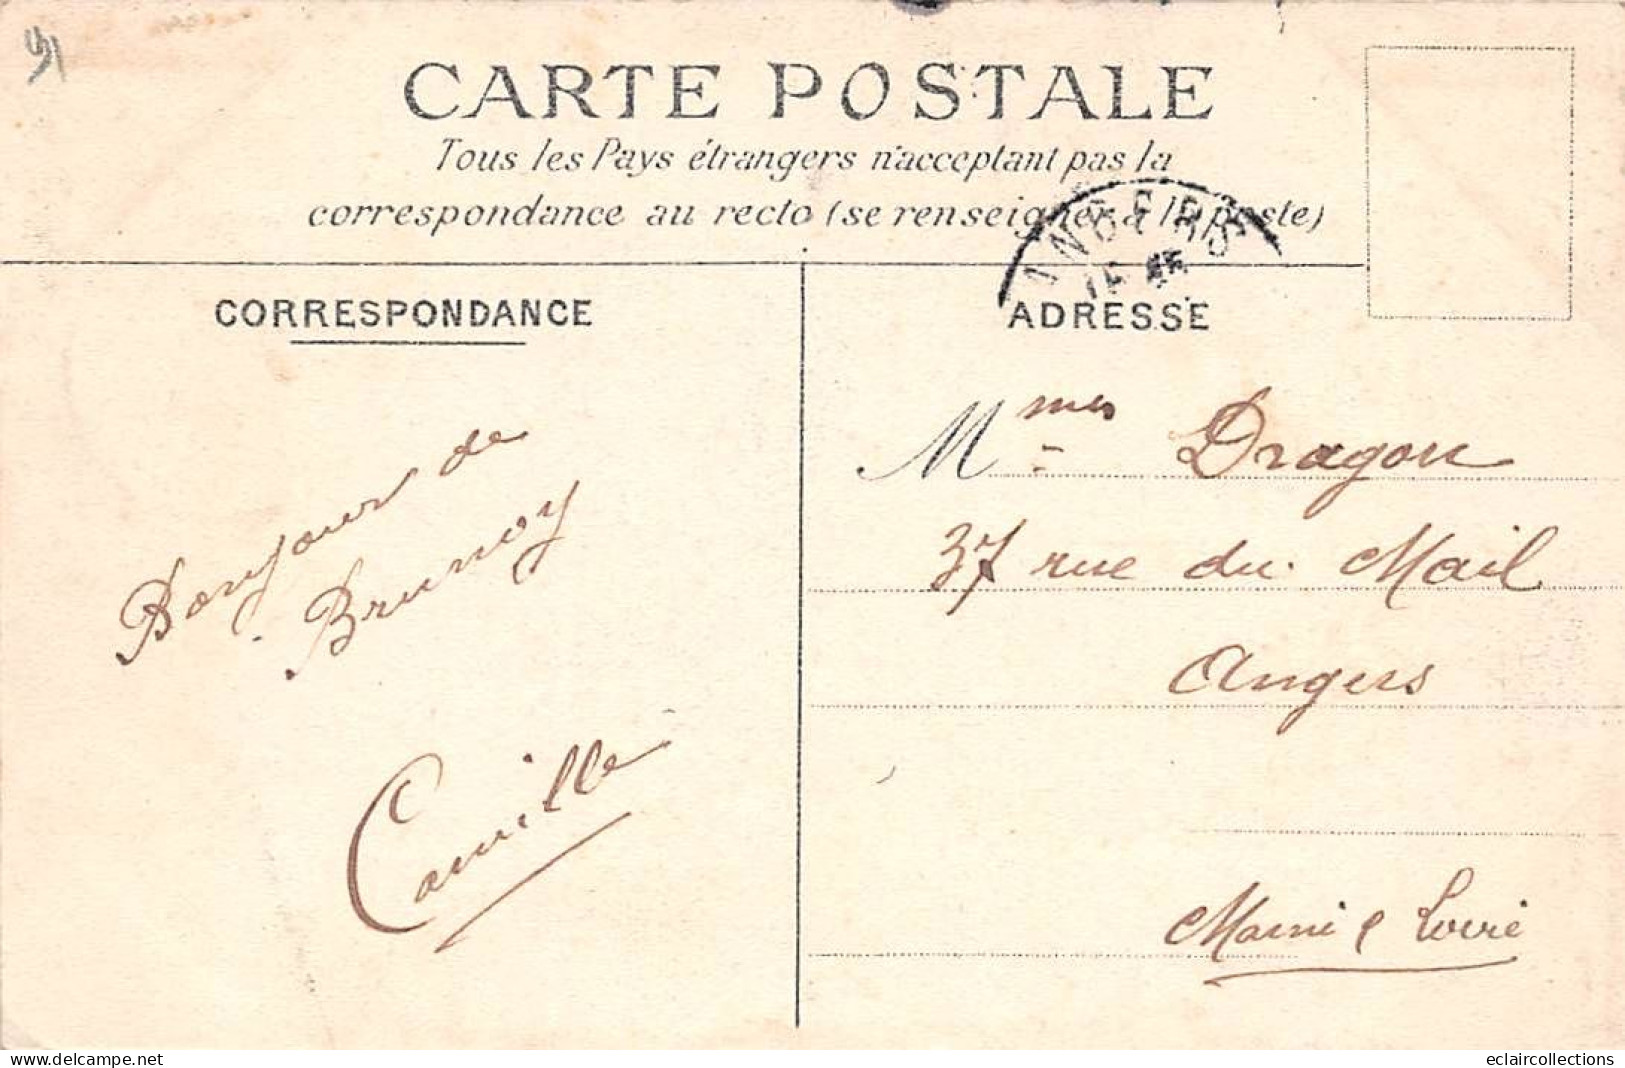 91
CARTE POSTALE
Tous les Pays étrangers n'acceptant pas la
correspondance au recto (se renseigner à la poste)
ANGERS
CORRESPONDANCE
ADRESSE
Bonjour de
Brunoy
Camille
Mmes Dragon
37 rue du Mail
Angers
Maine & Loire
www.delcampe.net
eclaircollections